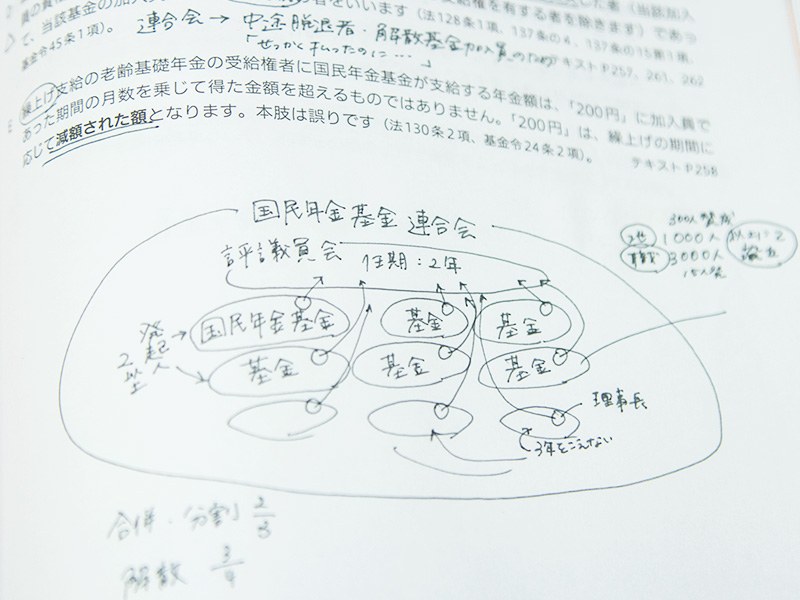 た者（当該加入
員の資
者をいいます（法128条1項、137条の4、137条の15第1項、
て、当該基金の加入
基金令45条1項）。
連合会→中途脱退者・解散基金加入員のため
「せっかく払ったのに…」
テキストP257、261、262
繰上げ支給の老齢基礎年金の受給権者に国民年金基金が支給する年金額は、「200円」に加入員で
あった期間の月数を乗じて得た金額を超えるものではありません。「200円」は、繰上げの期間に
応じて減額された額となります。本肢は誤りです（法130条2項、基金令24条2項）。
テキストP258
国民年金基金連合会
評議員会 任期：2年
300人
地 1000人
職 3000人
設立
発起人
2以上
国民年金基金
基金
基金
基金
基金
基金
理事長
3年をこえない
合併・分割 2/3
解散 3/4